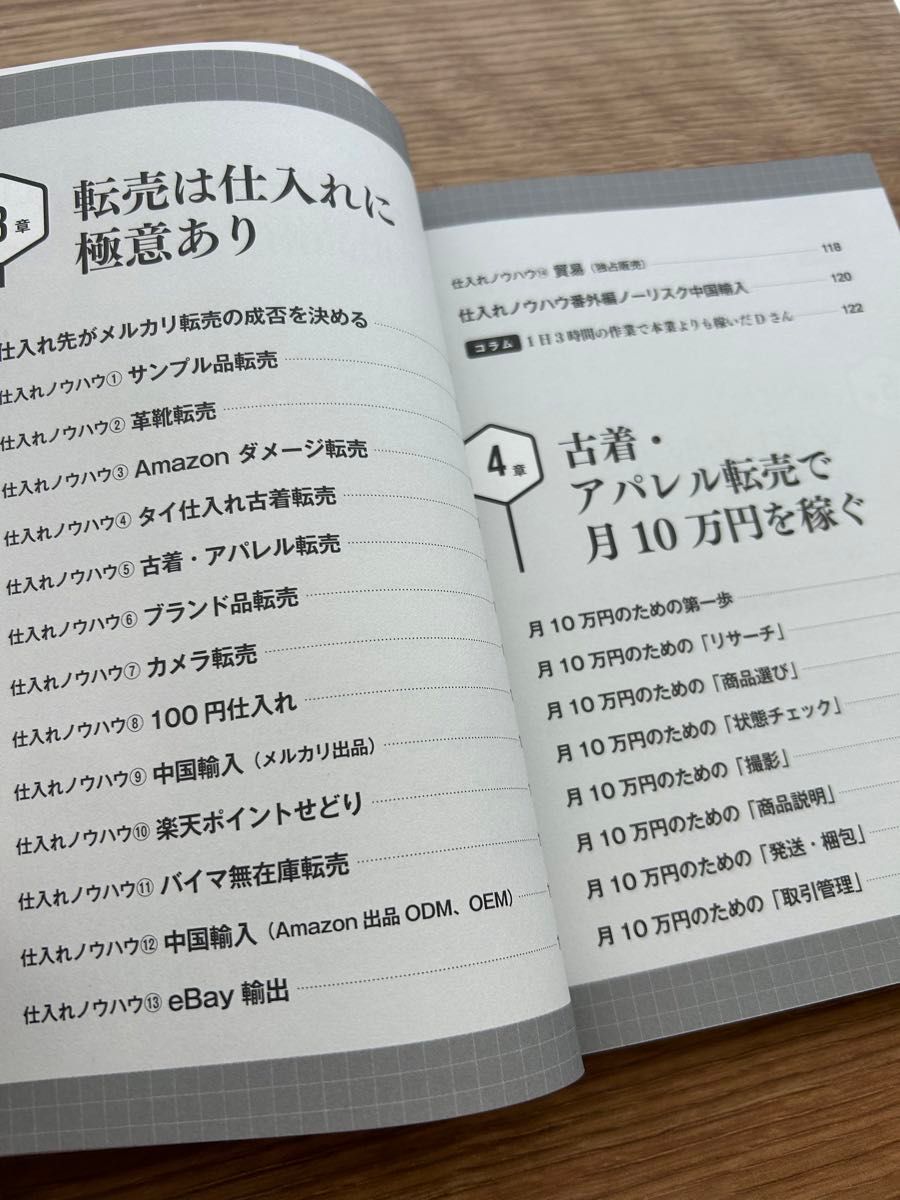 3章
転売は仕入れに
極意あり
仕入れ先がメルカリ転売の成否を決める
仕入れノウハウ① サンプル品転売
仕入れノウハウ② 革靴転売
仕入れノウハウ③ Amazon ダメージ転売
仕入れノウハウ④ タイ仕入れ古着転売
仕入れノウハウ⑤ 古着・アパレル転売
仕入れノウハウ⑥ ブランド品転売
仕入れノウハウ⑦ カメラ転売
仕入れノウハウ⑧ 100円仕入れ
仕入れノウハウ⑨ 中国輸入（メルカリ出品）
仕入れノウハウ⑩ 楽天ポイントせどり
仕入れノウハウ⑪ バイマ無在庫転売
仕入れノウハウ⑫ 中国輸入（Amazon 出品 ODM、OEM）
仕入れノウハウ⑬ eBay 輸出
仕入れノウハウ⑭ 貿易（独占販売） 118
仕入れノウハウ番外編ノーリスク中国輸入 120
コラム 1日3時間の作業で本業よりも稼いだDさん 122
4章
古着・
アパレル転売で
月10万円を稼ぐ
月10万円のための第一歩
月10万円のための「リサーチ」
月10万円のための「商品選び」
月10万円のための「状態チェック」
月10万円のための「撮影」
月10万円のための「商品説明」
月10万円のための「発送・梱包」
月10万円のための「取引管理」